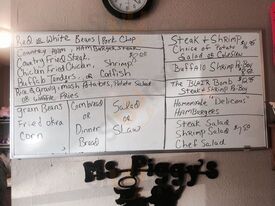 Red & White Beans Pork Chop
Country Ham, Hamburger Steak
Country Fried Steak
Chicken Fried Chicken, Shrimp
Buffalo Tenders, or Catfish
Rice & gravy, Mash Potatoes, Potato Salad
or White Fries
Green Beans
Fried Okra
Corn
Cornbread
or
Dinner
Bread
Salad
or
Slaw
Steak & Shrimp
Choice of Potato
Salad or Coleslaw
Buffalo Shrimp Po-Boy
The Blair Bomb
Steak & Shrimp Po-Boy
Homemade "Delicious"
Hamburgers
Steak Salad
Shrimp Salad
Chef Salad
Ms. Piggy's